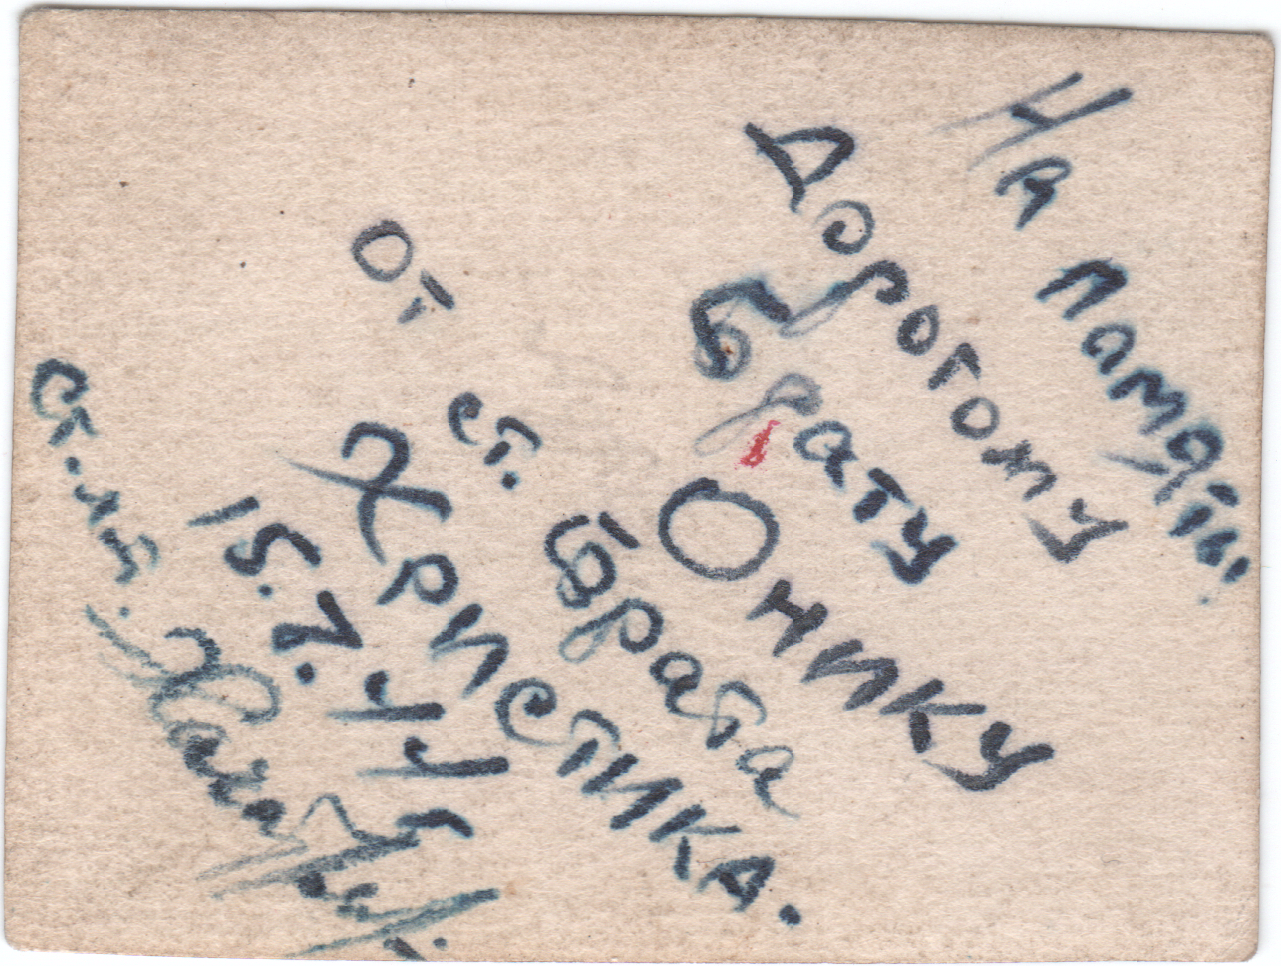 На память.
Дорогому
Брату
Онику
От
ст. Брата
Христика.
15.7.44г
ст. л-т.